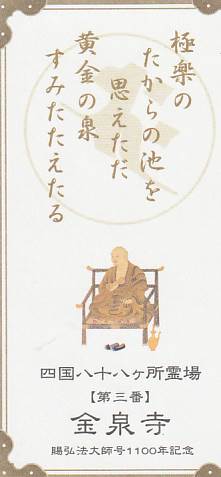 極楽の
たからの池を
思えただ
黄金の泉
すみたたえたる
四国八十八ヶ所霊場
【第三番】
金泉寺
賜弘法大師号1100年記念